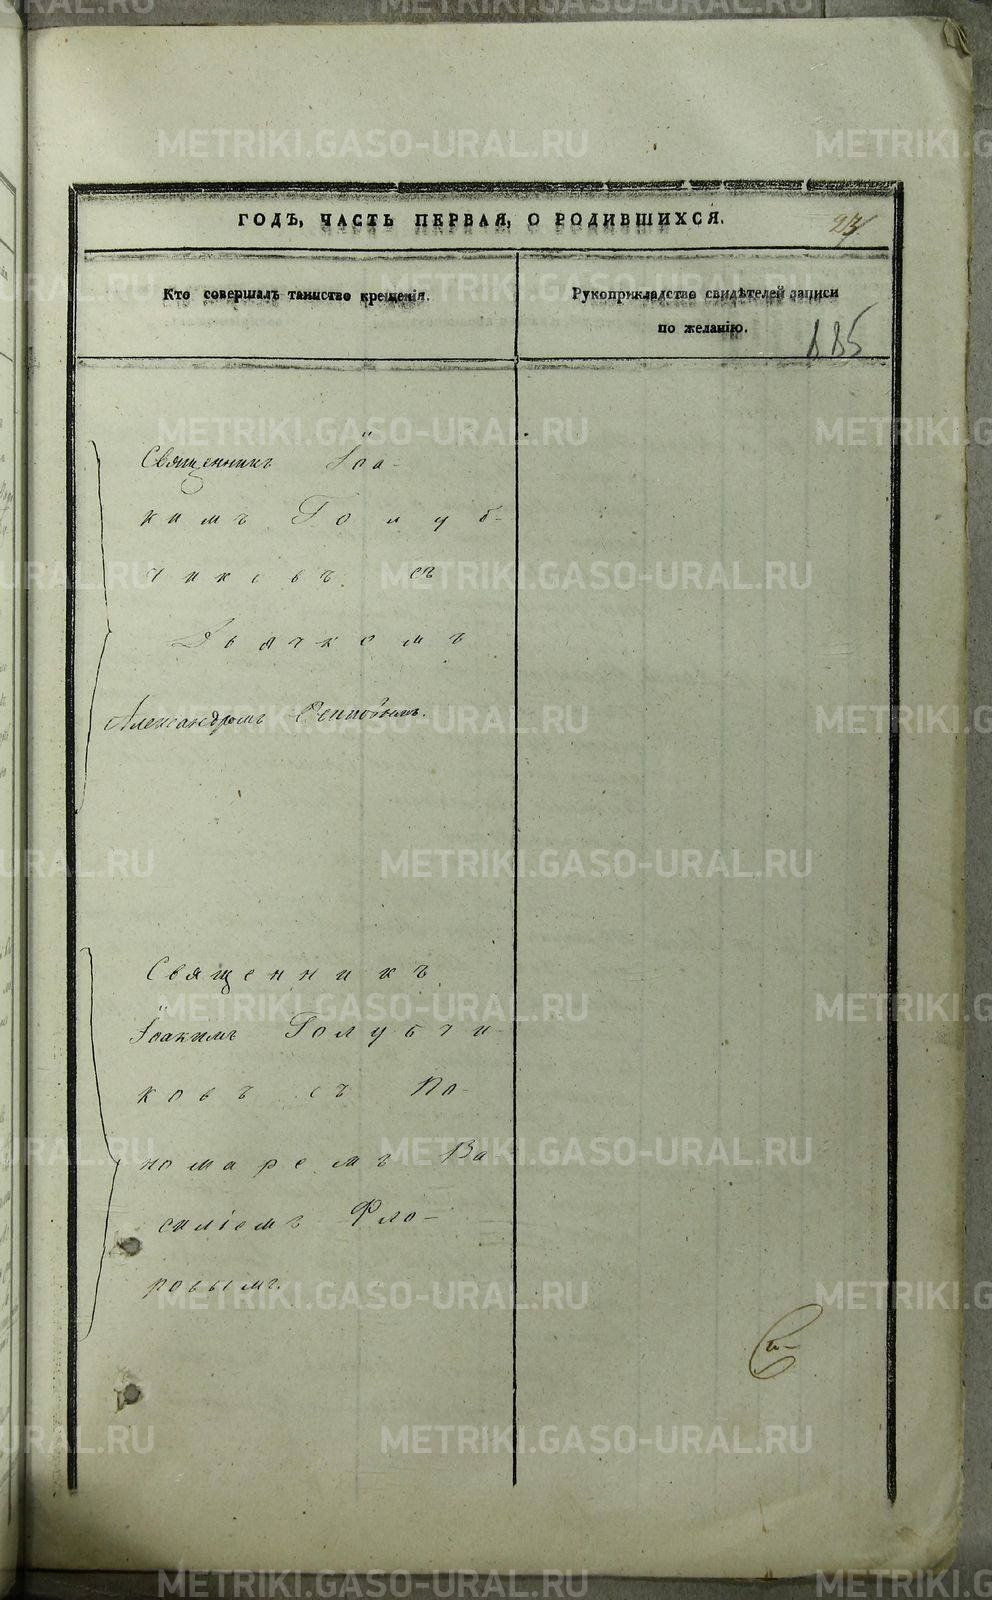 METRIKI.GASO-URAL.RU
ГОДЪ, ЧАСТЬ ПЕРВАЯ, О РОДИВШИХСЯ.
Кто совершалъ таинство крещенія.
Рукоприкладство свидѣтелей записи
по желанію.
Священникъ Іоа-
кимъ Голуб-
чиковъ съ
Дьячкомъ
Александромъ
Священникъ
Іоакимъ Голубчи-
ковъ съ По-
номаремъ Ва
силіемъ Фло-
ровымъ.